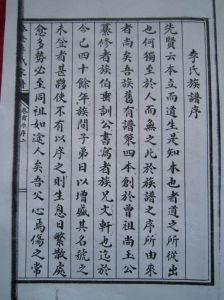 李氏族譜序
先賢云本立而道生是知本也者道之所從出
也何獨至於人而無之此於族譜之序所由來
者尚矣吾族舊有譜策四本創於曾祖尚玉公
纂修者族伯衡訓公書寫者族兄文軒也迄於
今已四十餘年族間子弟日以增盛其名號之
未登者甚夥使不有以序之則生息日繁散處
愈多勢必至同祖如途人矣吾父心焉傷之常